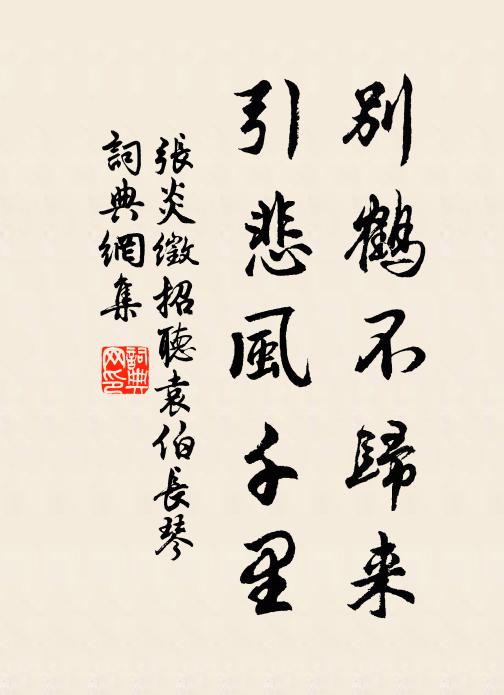 别鹤不歸来
引悲風千里
張炎徵招聽袁伯長琴
詞典網集
詞典网印